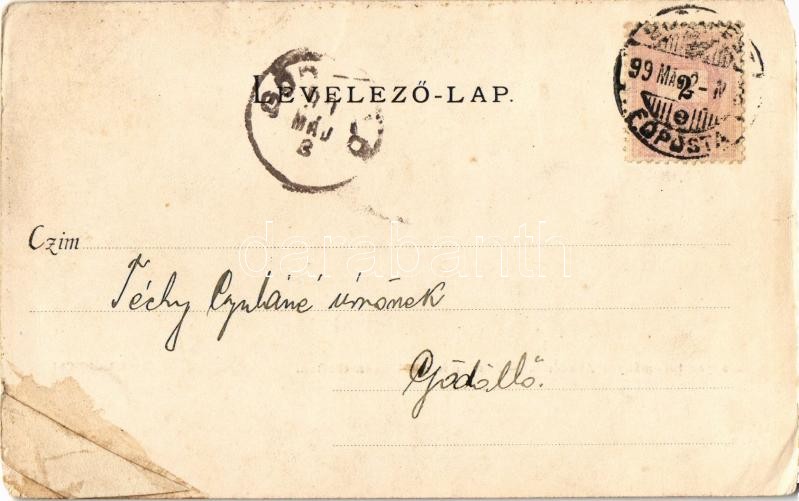 BUDAPEST
99 MÁJ 2 - N
2
FŐPOSTA
LEVELEZŐ-LAP.
MÁJ
3
Czim
darabanth
Téchy Gyuláné úrnőnek
Gödöllő.